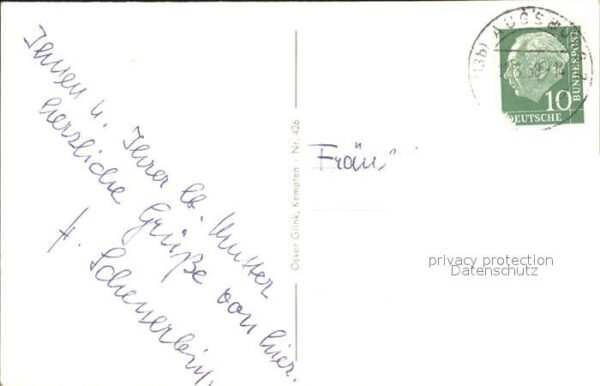 Ihnen u. Ihrer lb. Mutter
herzliche Grüße von hier.
H. Scheuerlein
Oskar Glink, Kempten - Nr. 426
Fräu
(13b) AUGSBURG 2
10
DEUTSCHE
BUNDESPOST
privacy protection
Datenschutz